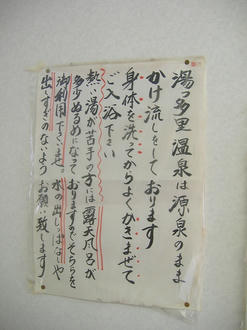 湯っ多里温泉は源泉のまま
かけ流しをしております
身体を洗ってからよくかきまぜて
ご入浴下さい
熱い湯が苦手の方には露天風呂が
多少ぬるめになっておりますのでそちらを
御利用下さいませ。水の出しっぱなしや
出しすぎのないようお願い致します